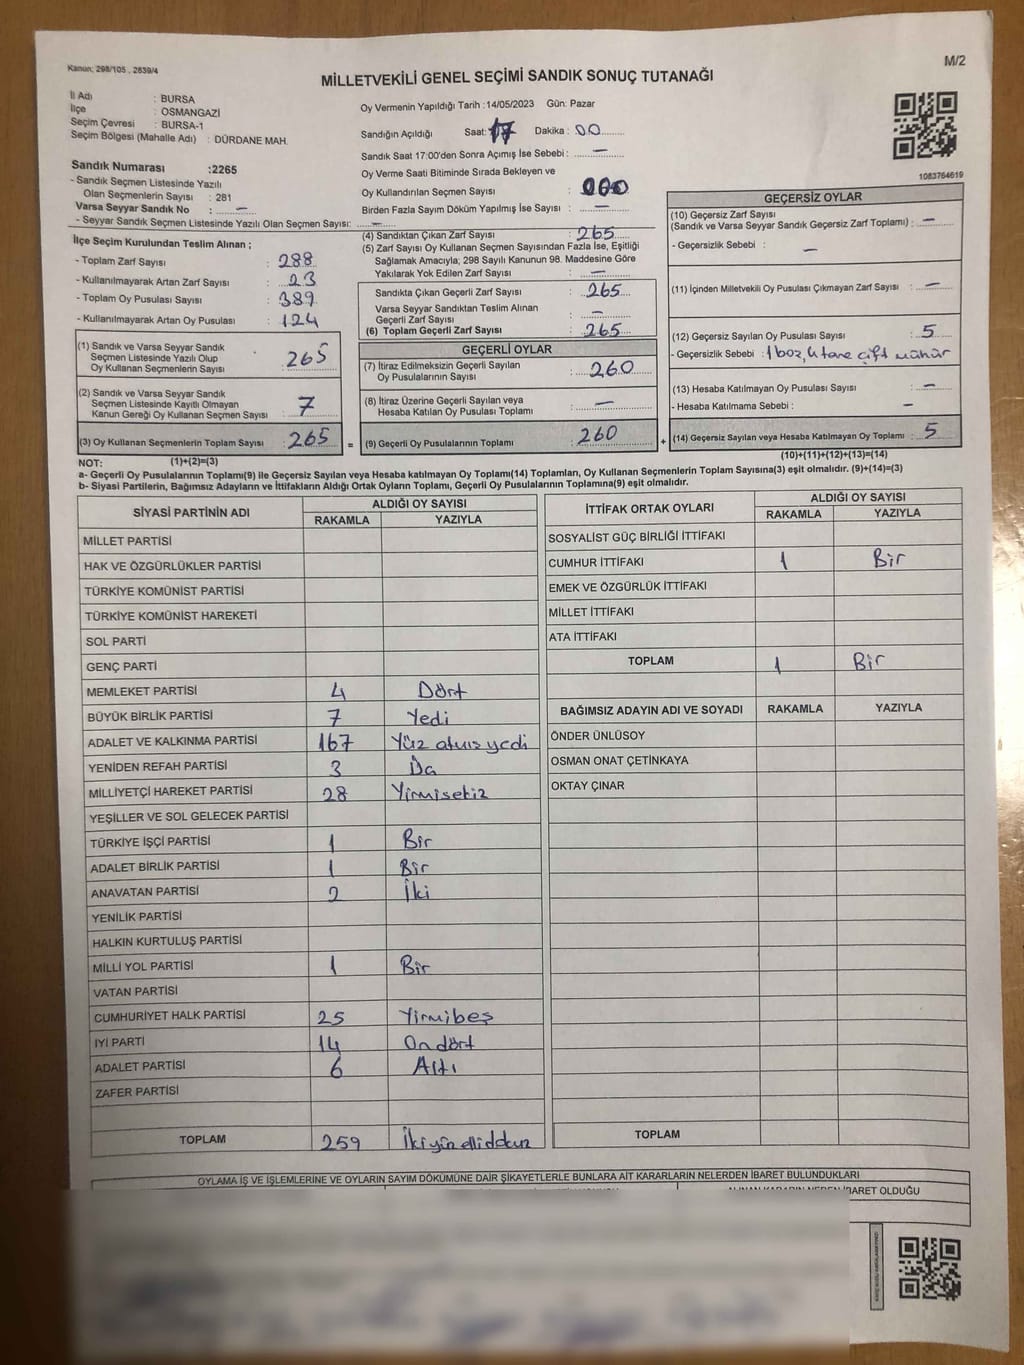 Kanun: 298/105 , 2839/4
M/2
MİLLETVEKİLİ GENEL SEÇİMİ SANDIK SONUÇ TUTANAĞI
İl Adı : BURSA
İlçe : OSMANGAZİ
Seçim Çevresi : BURSA-1
Seçim Bölgesi (Mahalle Adı) : DÜRDANE MAH.
Sandık Numarası :2265
- Sandık Seçmen Listesinde Yazılı
Olan Seçmenlerin Sayısı : 281
Varsa Seyyar Sandık No : —
- Seyyar Sandık Seçmen Listesinde Yazılı Olan Seçmen Sayısı: —
İlçe Seçim Kurulundan Teslim Alınan ;
- Toplam Zarf Sayısı : 288
- Kullanılmayarak Artan Zarf Sayısı : 23
- Toplam Oy Pusulası Sayısı : 389
- Kullanılmayarak Artan Oy Pusulası : 124
(1) Sandık ve Varsa Seyyar Sandık
Seçmen Listesinde Yazılı Olup
Oy Kullanan Seçmenlerin Sayısı : 265
(2) Sandık ve Varsa Seyyar Sandık
Seçmen Listesinde Kayıtlı Olmayan
Kanun Gereği Oy Kullanan Seçmen Sayısı : 7
(3) Oy Kullanan Seçmenlerin Toplam Sayısı : 265
(1)+(2)=(3)
Oy Vermenin Yapıldığı Tarih :14/05/2023 Gün: Pazar
Sandığın Açıldığı Saat: 17 Dakika : 00
Sandık Saat 17:00'den Sonra Açımış İse Sebebi : —
Oy Verme Saati Bitiminde Sırada Bekleyen ve
Oy Kullandırılan Seçmen Sayısı :
Birden Fazla Sayım Döküm Yapılmış İse Sayısı : —
(4) Sandıktan Çıkan Zarf Sayısı : 265
(5) Zarf Sayısı Oy Kullanan Seçmen Sayısından Fazla İse, Eşitliği
Sağlamak Amacıyla; 298 Sayılı Kanunun 98. Maddesine Göre
Yakılarak Yok Edilen Zarf Sayısı : —
Sandıkta Çıkan Geçerli Zarf Sayısı : 265
Varsa Seyyar Sandıktan Teslim Alınan
Geçerli Zarf Sayısı : —
(6) Toplam Geçerli Zarf Sayısı : 265
GEÇERLİ OYLAR
(7) İtiraz Edilmeksizin Geçerli Sayılan
Oy Pusulalarının Sayısı : 260
(8) İtiraz Üzerine Geçerli Sayılan veya
Hesaba Katılan Oy Pusulası Toplamı : —
= (9) Geçerli Oy Pusulalarının Toplamı : 260
1083764619
GEÇERSİZ OYLAR
(10) Geçersiz Zarf Sayısı
(Sandık ve Varsa Seyyar Sandık Geçersiz Zarf Toplamı) : —
- Geçersizlik Sebebi : —
(11) İçinden Milletvekili Oy Pusulası Çıkmayan Zarf Sayısı : —
(12) Geçersiz Sayılan Oy Pusulası Sayısı : 5
- Geçersizlik Sebebi : 1 boz, 4 tane çift mühür
(13) Hesaba Katılmayan Oy Pusulası Sayısı : —
- Hesaba Katılmama Sebebi : —
+ (14) Geçersiz Sayılan veya Hesaba Katılmayan Oy Toplamı : 5
(10)+(11)+(12)+(13)=(14)
NOT:
a- Geçerli Oy Pusulalarının Toplamı(9) ile Geçersiz Sayılan veya Hesaba katılmayan Oy Toplamı(14) Toplamları, Oy Kullanan Seçmenlerin Toplam Sayısına(3) eşit olmalıdır. (9)+(14)=(3)
b- Siyasi Partilerin, Bağımsız Adayların ve İttifakların Aldığı Ortak Oyların Toplamı, Geçerli Oy Pusulalarının Toplamına(9) eşit olmalıdır.
SİYASİ PARTİNİN ADI ALDIĞI OY SAYISI
RAKAMLA YAZIYLA
MİLLET PARTİSİ
HAK VE ÖZGÜRLÜKLER PARTİSİ
TÜRKİYE KOMÜNİST PARTİSİ
TÜRKİYE KOMÜNİST HAREKETİ
SOL PARTİ
GENÇ PARTİ
MEMLEKET PARTİSİ 4 Dört
BÜYÜK BİRLİK PARTİSİ 7 Yedi
ADALET VE KALKINMA PARTİSİ 167 Yüz atmış yedi
YENİDEN REFAH PARTİSİ 3 Üç
MİLLİYETÇİ HAREKET PARTİSİ 28 Yirmisekiz
YEŞİLLER VE SOL GELECEK PARTİSİ
TÜRKİYE İŞÇİ PARTİSİ 1 Bir
ADALET BİRLİK PARTİSİ 1 Bir
ANAVATAN PARTİSİ 2 İki
YENİLİK PARTİSİ
HALKIN KURTULUŞ PARTİSİ
MİLLİ YOL PARTİSİ 1 Bir
VATAN PARTİSİ
CUMHURİYET HALK PARTİSİ 25 Yirmibeş
İYİ PARTİ 14 Ondört
ADALET PARTİSİ 6 Altı
ZAFER PARTİSİ
TOPLAM 259 İkiyüzellidokuz
İTTİFAK ORTAK OYLARI ALDIĞI OY SAYISI
RAKAMLA YAZIYLA
SOSYALİST GÜÇ BİRLİĞİ İTTİFAKI
CUMHUR İTTİFAKI 1 Bir
EMEK VE ÖZGÜRLÜK İTTİFAKI
MİLLET İTTİFAKI
ATA İTTİFAKI
TOPLAM 1 Bir
BAĞIMSIZ ADAYIN ADI VE SOYADI RAKAMLA YAZIYLA
ÖNDER ÜNLÜSOY
OSMAN ONAT ÇETİNKAYA
OKTAY ÇINAR
TOPLAM
OYLAMA İŞ VE İŞLEMLERİNE VE OYLARIN SAYIM DÖKÜMÜNE DAİR ŞİKAYETLERLE BUNLARA AİT KARARLARIN NELERDEN İBARET BULUNDUKLARI
İBARET OLDUĞU